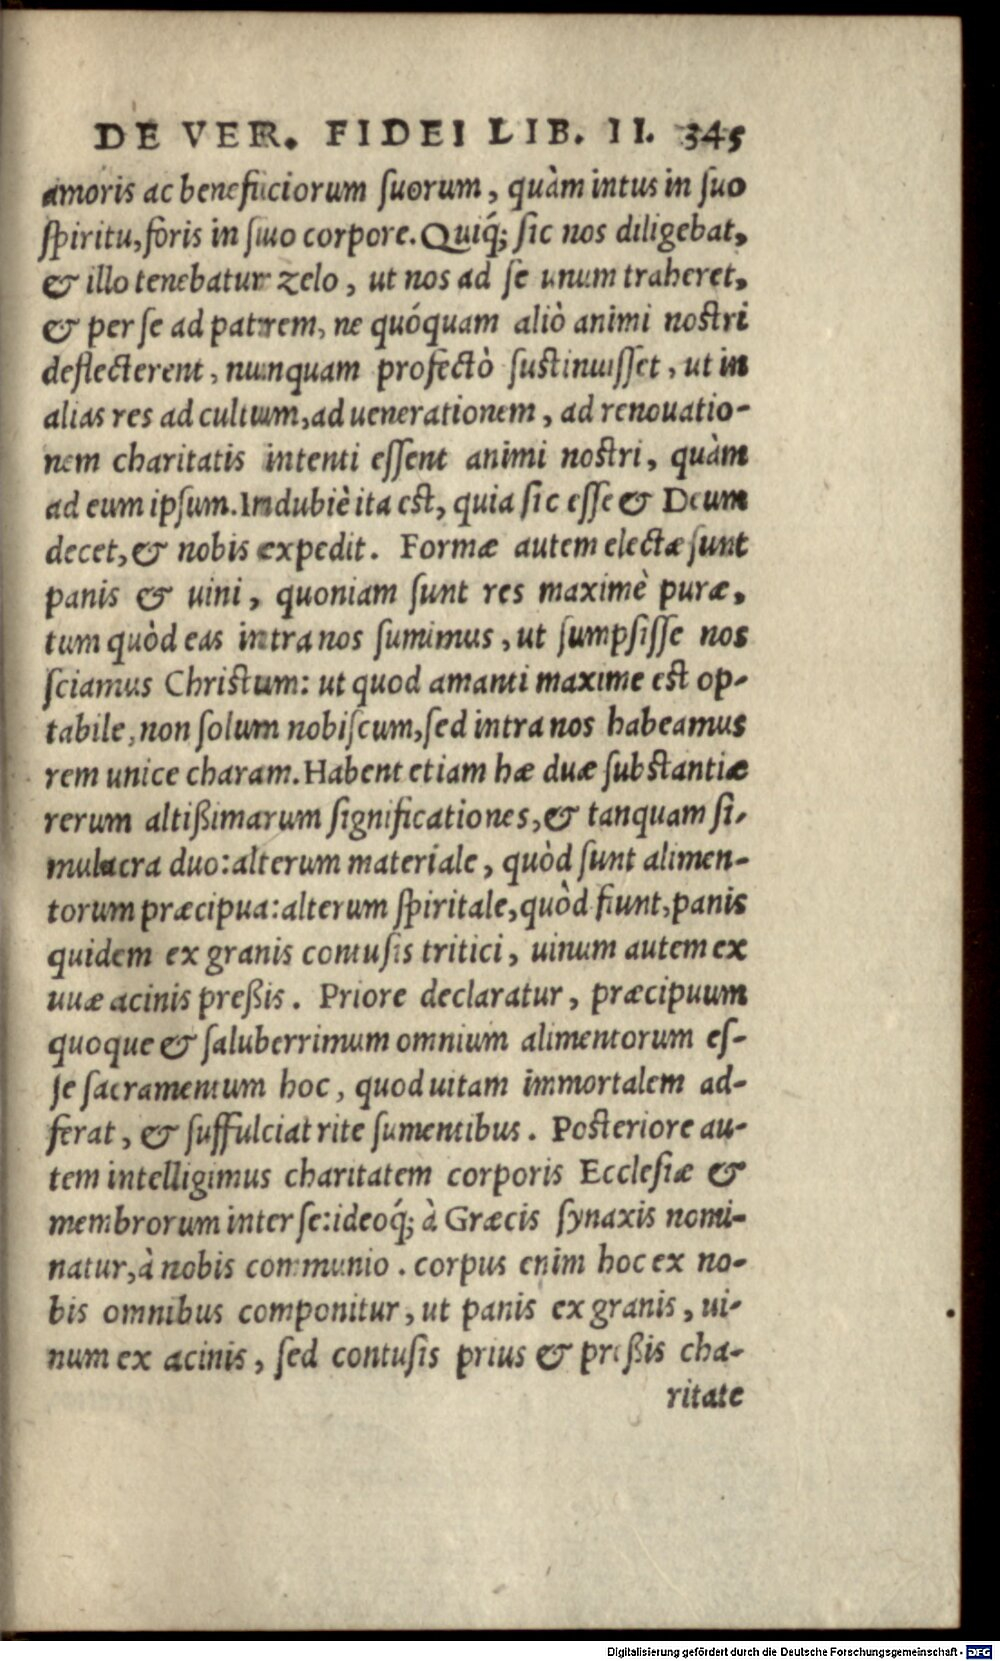 DE VER. FIDEI LIB. II. 345
amoris ac beneficiorum suorum, quàm intus in suo
spiritu, foris in suo corpore. Quiq́; sic nos diligebat,
& illo tenebatur zelo, ut nos ad se unum traheret,
& per se ad patrem, ne quóquam aliò animi nostri
deflecterent, nunquam profectò sustinuisset, ut in
alias res ad cultum, ad uenerationem, ad renouatio-
nem charitatis intenti essent animi nostri, quàm
ad eum ipsum. Indubiè ita est, quia sic esse & Deum
decet, & nobis expedit. Formæ autem electæ sunt
panis & uini, quoniam sunt res maximè puræ,
tum quòd eas intra nos sumimus, ut sumpsisse nos
sciamus Christum: ut quod amanti maxime est op-
tabile, non solum nobiscum, sed intra nos habeamus
rem unice charam. Habent etiam hæ duæ substantiæ
rerum altißimarum significationes, & tanquam si-
mulacra duo: alterum materiale, quòd sunt alimen-
torum præcipua: alterum spiritale, quòd fiunt, panis
quidem ex granis contusis tritici, uinum autem ex
uuæ acinis preßis. Priore declaratur, præcipuum
quoque & saluberrimum omnium alimentorum es-
se sacramentum hoc, quod uitam immortalem ad-
ferat, & suffulciat rite sumentibus. Posteriore au-
tem intelligimus charitatem corporis Ecclesiæ &
membrorum inter se: ideoq́; à Græcis synaxis nomi-
natur, à nobis communio. corpus enim hoc ex no-
bis omnibus componitur, ut panis ex granis, ui-
num ex acinis, sed contusis prius & preßis cha-
ritate
Digitalisierung gefördert durch die Deutsche Forschungsgemeinschaft - DFG